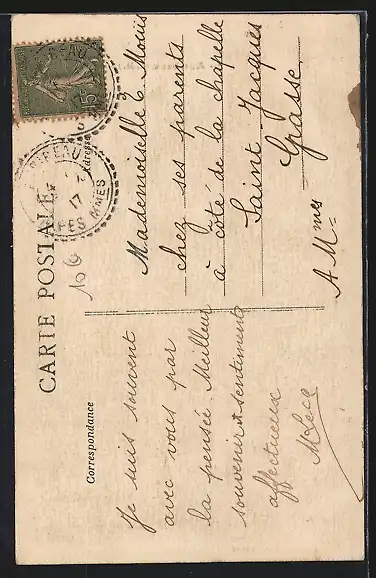 CARTE POSTALE
Correspondance
Adresse
Je suis souvent
avec vous par
la pensée. Meilleur
souvenir & sentiments
affectueux
Mademoiselle G. Mouïs
chez ses parents
à côté de la chapelle
Saint Jacques
Grasse
A Mmes
106
15
17